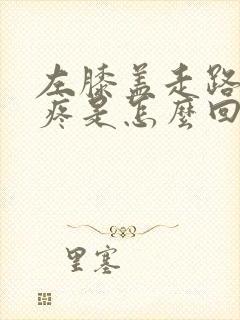 左膝盖走路
疼是怎麼回
里塞